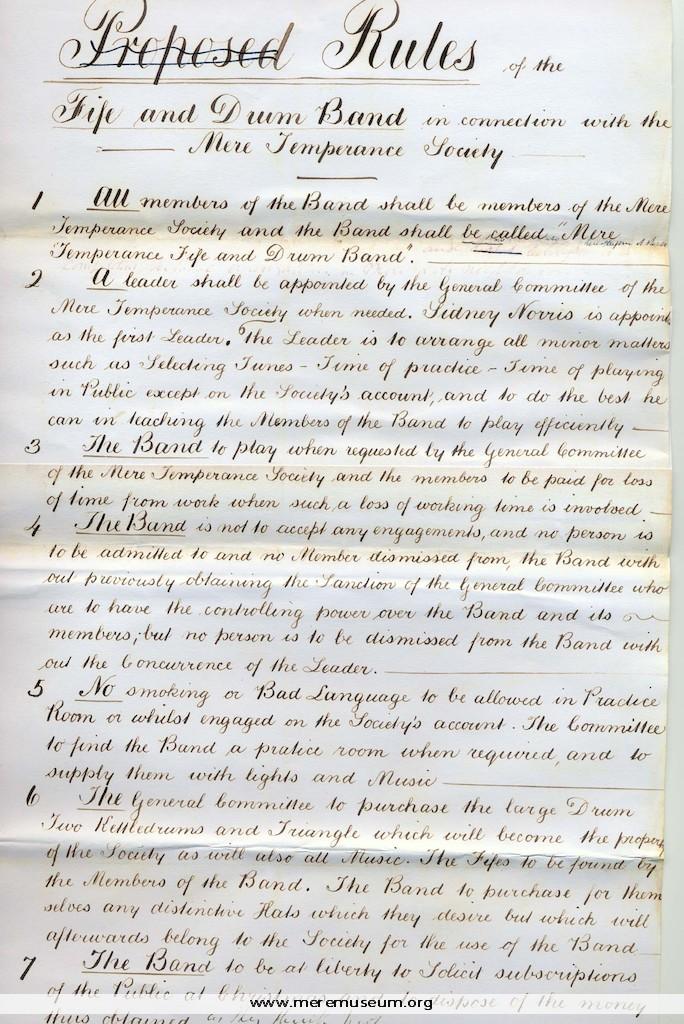 Proposed Rules of the
Fife and Drum Band in connection with the
Mere Temperance Society
1 All members of the Band shall be members of the Mere
Temperance Society and the Band shall be called "Mere
Temperance Fife and Drum Band".
2 A leader shall be appointed by the General Committee of the
Mere Temperance Society when needed. Sidney Norris is appoint
as the first Leader. The Leader is to arrange all minor matters
such as Selecting Tunes - Time of practice - Time of playing
in Public except on the Society's account, and to do the best he
can in teaching the Members of the Band to play efficiently
3 The Band to play when requested by the General Committee
of the Mere Temperance Society and the members to be paid for loss
of time from work when such a loss of working time is involved
4 The Band is not to accept any engagements, and no person is
to be admitted to and no Member dismissed from, the Band with
out previously obtaining the Sanction of the General Committee who
are to have the controlling power over the Band and its
members; but no person is to be dismissed from the Band with
out the Concurrence of the Leader.
5 No smoking or Bad Language to be allowed in Practice
Room or whilst engaged on the Society's account. The Committee
to find the Band a pratice room when required, and to
supply them with lights and Music
6 The General Committee to purchase the large Drum
Two Kettledrums and Triangle which will become the propery
of the Society as will also all Music. The Fifes to be found by
the Members of the Band. The Band to purchase for them
selves any distinctive Hats which they desire but which will
afterwards belong to the Society for the use of the Band
7 The Band to be at liberty to Solicit subscriptions
of the Public at dispose of the money
thus obtained as they think
www.meremuseum.org